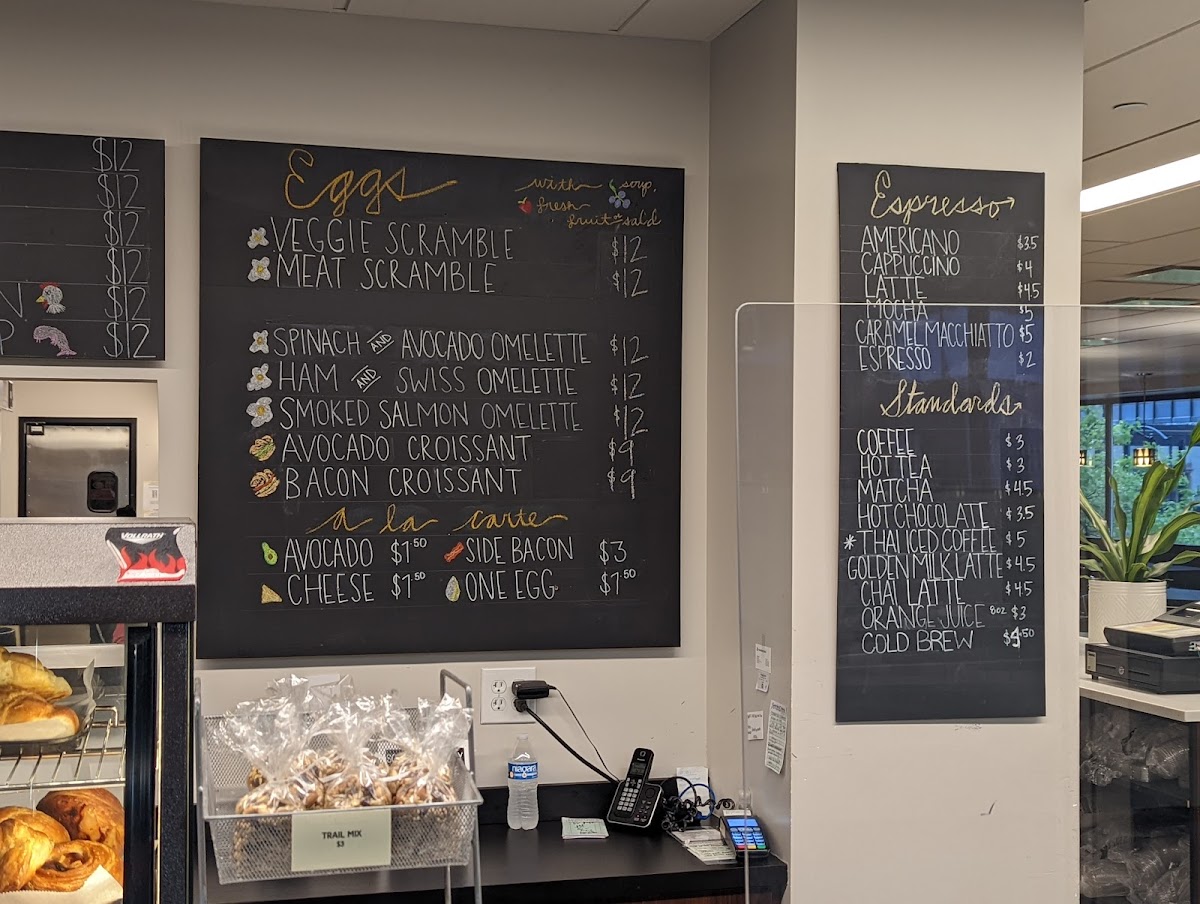 $12
$12
$12
$12
N $12
P $12
Eggs
with soup,
fresh
fruit or sal'd
VEGGIE SCRAMBLE $12
MEAT SCRAMBLE $12
SPINACH AND AVOCADO OMELETTE $12
HAM AND SWISS OMELETTE $12
SMOKED SALMON OMELETTE $12
AVOCADO CROISSANT $9
BACON CROISSANT $9
a la carte
AVOCADO $1.50 SIDE BACON $3
CHEESE $1.50 ONE EGG $1.50
Espresso
AMERICANO $3.5
CAPPUCCINO $4
LATTE $4.5
MOCHA $5
CARAMEL MACCHIATTO $5
ESPRESSO $2
Standards
COFFEE $3
HOT TEA $3
MATCHA $4.5
HOT CHOCOLATE $3.5
* THAI ICED COFFEE $5
GOLDEN MILK LATTE $4.5
CHAI LATTE $4.5
ORANGE JUICE 8OZ $3
COLD BREW
VOLLRATH
niagara
TRAIL MIX
$3